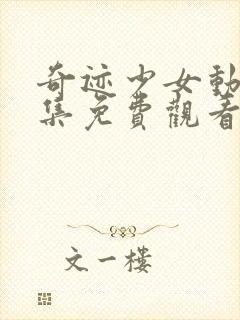 奇迹少女動
集免費觀看
文一樓